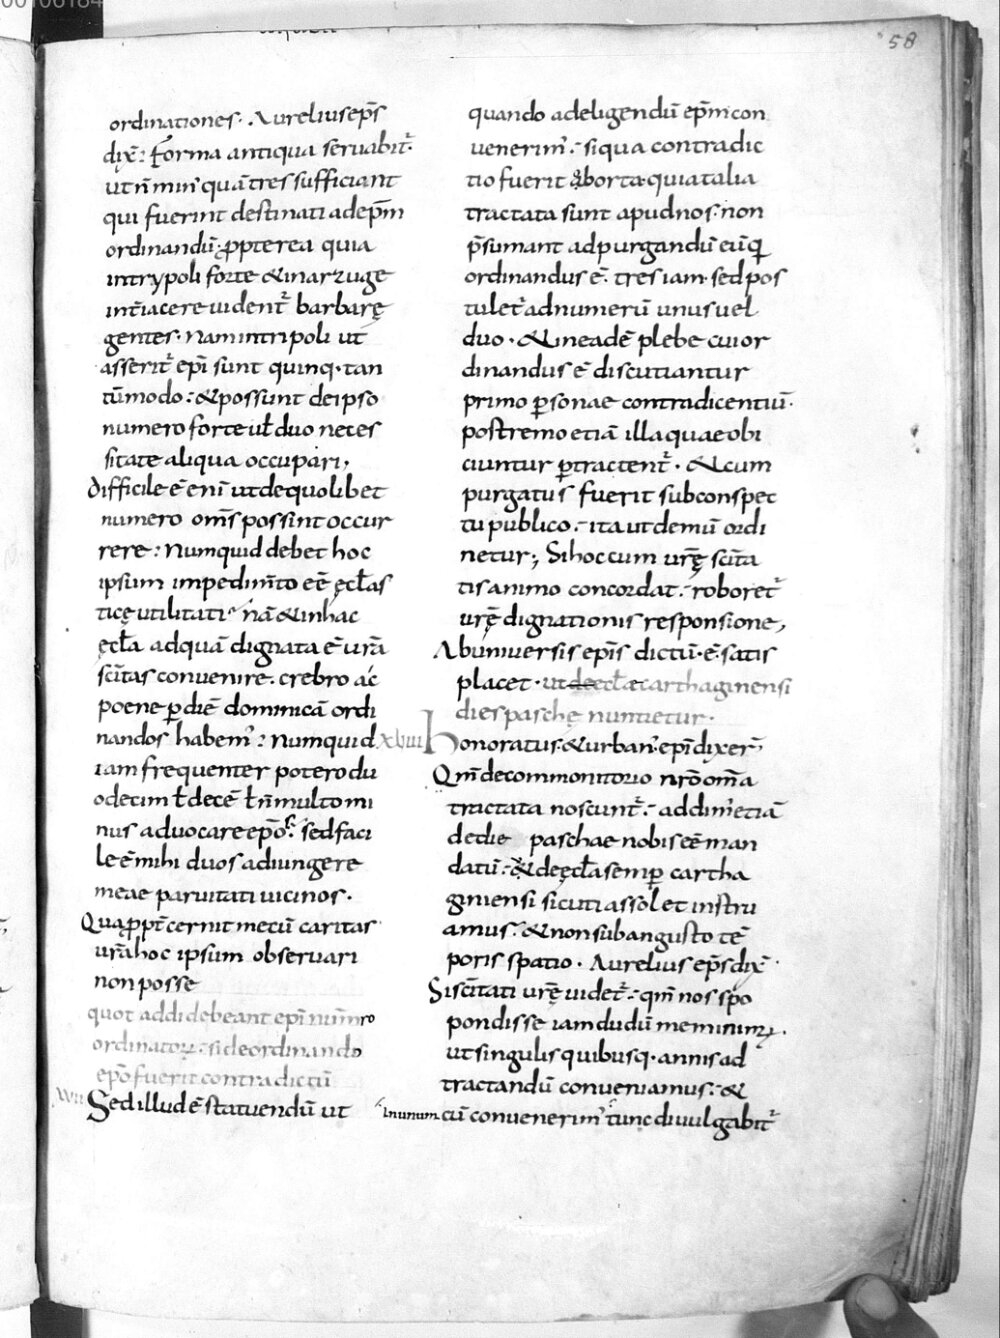 58
ordinationes. Aurelius ep̄s
dix̄: Forma antiqua seruabit̄.
ut n̄ min' quā tres sufficiant
qui fuerint destinati ad ep̄m
ordinandū. ꝓpterea quia
in trypoli forte & in arzuge
int̄iacere uident̄ barbarę
gentes. nam in tripoli ut
asserit̄ ep̄i sunt quinq. tan
tūmodo: & possunt de ipso
numero forte uł duo neces
sitate aliqua occupari,
difficile ē eni ut de quolibet
numero om̄s possint occur
rere: Numquid debet hoc
ipsum impedim̄to eē ęccłas
ticę utilitati nā & in hac
ęccła ad quā dignata ē urā
sc̄itas conuenire. crebro ac
poene ꝑ diē dominicā ordi
nandos habem': Numquid
iam frequenter potero du
odecim ł decē ł n̄ multo mi
nus aduocare ep̄os: sed faci
le ē mihi duos adiungere
meae paruitati uicinos.
Quappt̄ cernit mecū caritas
urā hoc ipsum obseruari
non posse
quot addi debeant ep̄i numro
ordinatorꝝ. si de ordinando
ep̄o fuerit contradictū
XVII Sed illud ē statuendū ut
quando ad eligendū ep̄m con
uenerim'. si qua contradic
tio fuerit oborta. quia talia
tractata sunt apud nos. non
p̄sumant ad purgandū eū q
ordinandus ē. tres iam. sed pos
tulet̄ ad numerū unus uel
duo. & in eadē plebe cui or
dinandus ē discutiantur
primo ꝑsonae contradicentiū.
postremo etiā illa quae obi
ciuntur ꝑtractent̄. & cum
purgatus fuerit sub conspec
tu publico. ita ut demū ordi
netur; Si hoc cum urę̄ sc̄ita
tis animo concordat. roboret̄
urę̄ dignationis responsione,
Ab uniuersis ep̄is dictū. ē. satis
placet. ut de eccła carthaginensi
dies paschę nuntietur.
XVIII Honoratus. & urban'. ep̄i dixer̄,
Qm̄ de commonitorio nr̄o om̄a
tractata noscunt̄. addim' etiā
de die paschae nobis eē man
datū. & de ęccła semꝑ cartha
giniensi sicuti assolet instru
amus. & non sub angusto tē
poris spatio. Aurelius ep̄s dix̄
Si sc̄itati urę̄ uidet̄. qm̄ nos spo
pondisse iam dudū meminimꝰ.
ut singulis quibusq. annis ad
tractandū conueniamus. &
in unum cū conuenerim' tunc diuulgabit̄